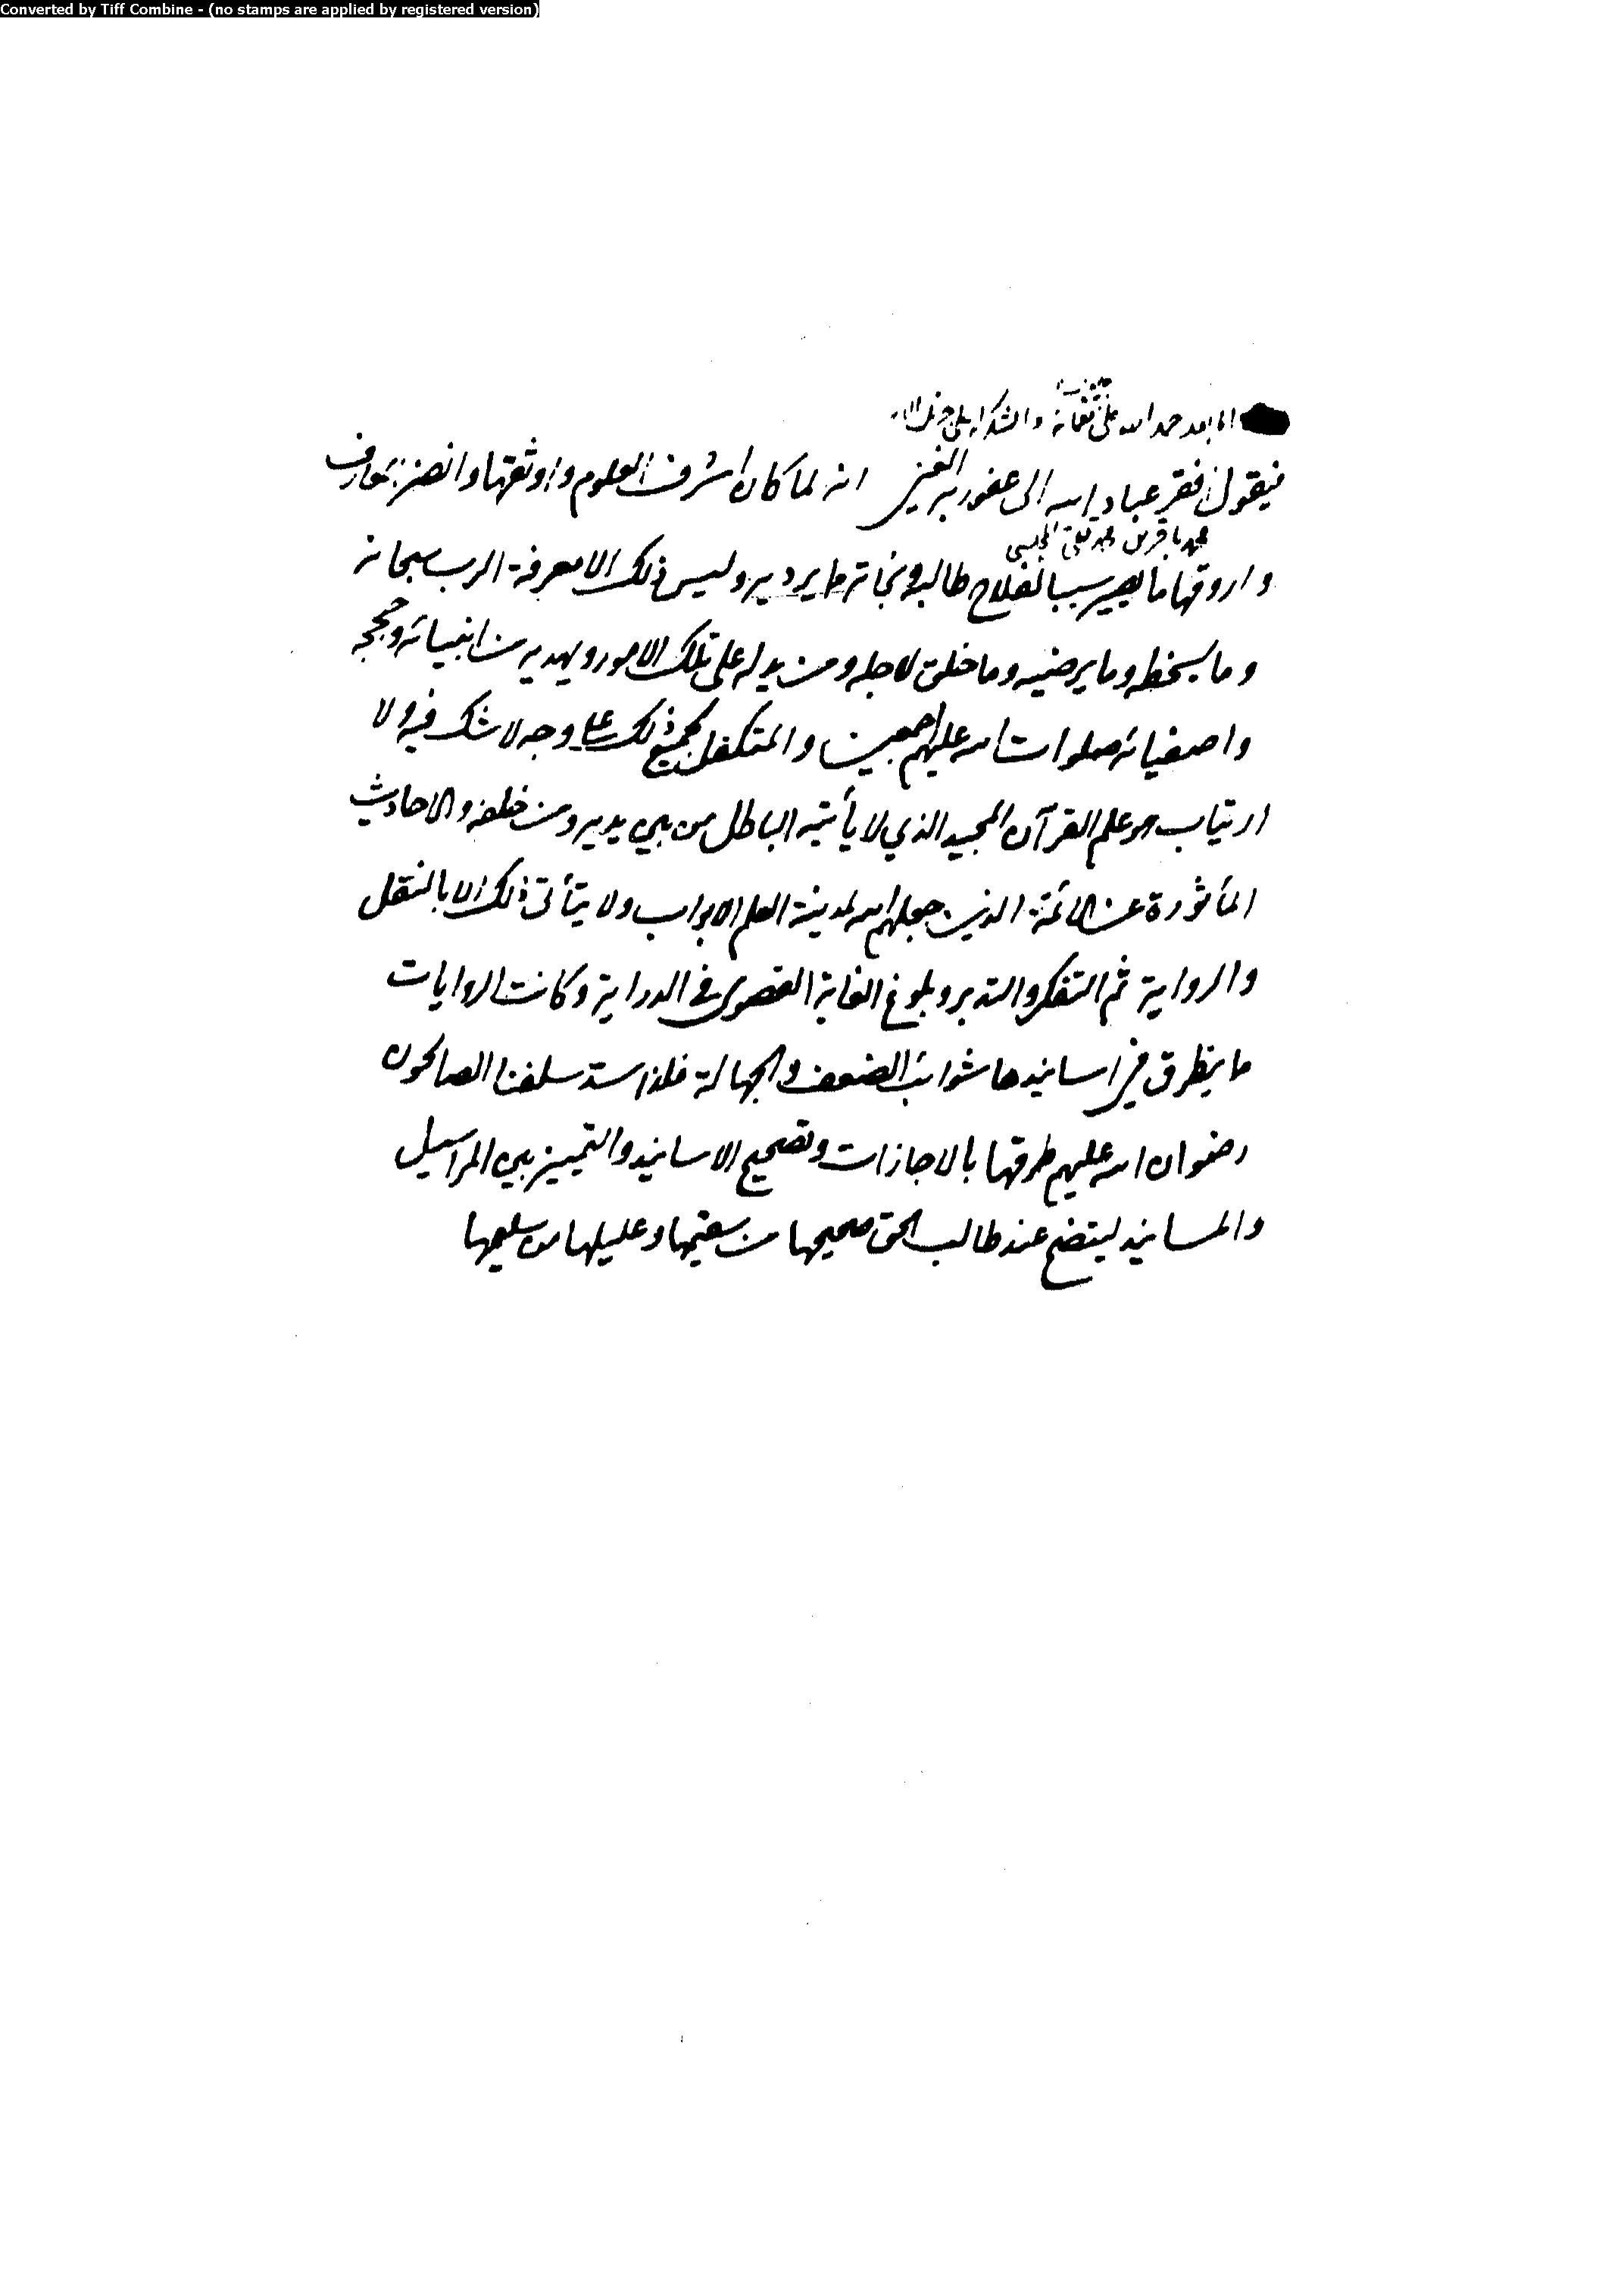 Converted by Tiff Combine - (no stamps are applied by registered version)
اما بعد حمد الله على نعمائه والشكر له على
فيقول افقر عباد الله الى عفو ربه الغني انه لما كان اشرف العلوم واوثقها
محمد باقر بن محمد تقي المجلسي
واروقها ما يصير سببا لفلاح طالبه ونجاته عما يرديه وليس ذلك الا معرفة الرب سبحانه
وما يسخطه وما يرضيه وما خلق لاجله ومن يدله على تلك الامور ويهديه من انبيائه وحججه
واصفيائه صلوات الله عليهم اجمعين والمتكفل بجميع ذلك على وجه لا شك فيه ولا
ارتياب هو علم القرآن المجيد الذي لا يأتيه الباطل من بين يديه ومن خلفه والاحاديث
المأثورة عن الائمة الذين جعلهم الله لمدينة العلم الابواب ولا يتأتى ذلك الا بالنقل
والرواية ثم التفكر والتدبر وبلوغ الغاية القصوى في الدراية وكانت الروايات
ما يتطرق في اسانيدها شوائب الضعف والجهالة فلذا سلفنا الصالحون
رضوان الله عليهم طرقها بالاجازات وتصحيح الاسانيد والتمييز بين المراسيل
والمسانيد ليتضح عند طالب الحق صحيحها من سقيمها وعليلها من سليمها